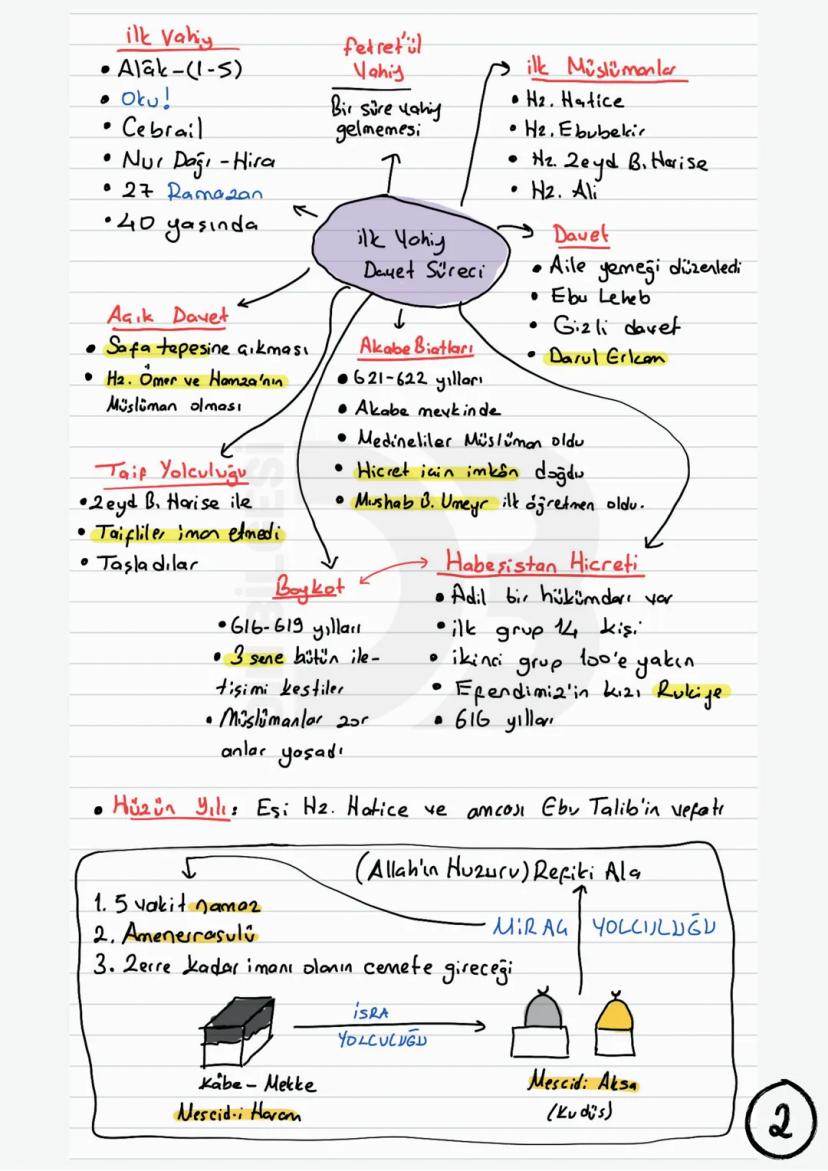 ilk Vahiy
• Alâk-(1-5)
• Oku!
• Cebrail
• Nur Dağı - Hira
• 27 Ramazan
• 40 yaşında
fetret'ül
Vahiy
Bir süre vahiy
gelmemesi
ilk Müslümanlar
• Hz. Hatice
• Hz. Ebubekir
• Hz. Zeyd B. Harise
• Hz. Ali
ilk Vahiy
Davet Süreci
Davet
• Aile yemeği düzenledi
• Ebu Leheb
• Gizli davet
• Darul Erkam
Açık Davet
• Safa tepesine çıkması
• Hz. Ömer ve Hamza'nın
Müslüman olması
Akabe Biatları
• 621-622 yılları
• Akabe mevkinde
• Medineliler Müslüman oldu
• Hicret için imkân doğdu
• Mushab B. Umeyr ilk öğretmen oldu.
Taif Yolculuğu
• Zeyd B. Harise ile
• Taifliler iman etmedi
• Taşladılar
Boykot
• 616-619 yılları
• 3 sene bütün ile-
tişimi kestiler
• Müslümanlar zor
anlar yaşadı
Habeşistan Hicreti
• Adil bir hükümdarı var
• ilk grup 14 kişi
• ikinci grup 100'e yakın
• Efendimiz'in kızı Rukiye
• 616 yılları
• Hüzün Yılı: Eşi Hz. Hatice ve amcası Ebu Talib'in vefatı
(Allah'ın Huzuru) Refiki Ala
1. 5 vakit namaz
2. Amenerrasulü
3. Zerre kadar imanı olanın cennete gireceği
MİRAÇ YOLCULUĞU
İSRA
YOLCULUĞU
Kâbe - Mekke
Mescid-i Haram
Mescidi Aksa
(Kudüs)
2
BİLGESİ